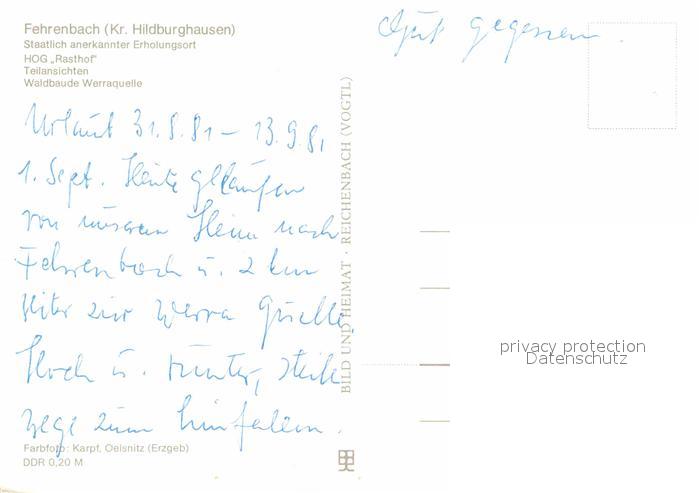 Fehrenbach (Kr. Hildburghausen)
Staatlich anerkannter Erholungsort
HOG „Rasthof"
Teilansichten
Waldbaude Werraquelle
Urlaub 31.8.81 – 13.9.81
1. Sept. Heute gelaufen
von unseren Heim nach
Fehrenbach u. 2 km
weiter zur Werra Quelle.
Hoch u. runter, steile
Wege zum hinfallen.
Gut gegessen.
Farbfoto: Karpf, Oelsnitz (Erzgeb)
DDR 0,20 M
BILD UND HEIMAT · REICHENBACH (VOGTL)
privacy protection
Datenschutz